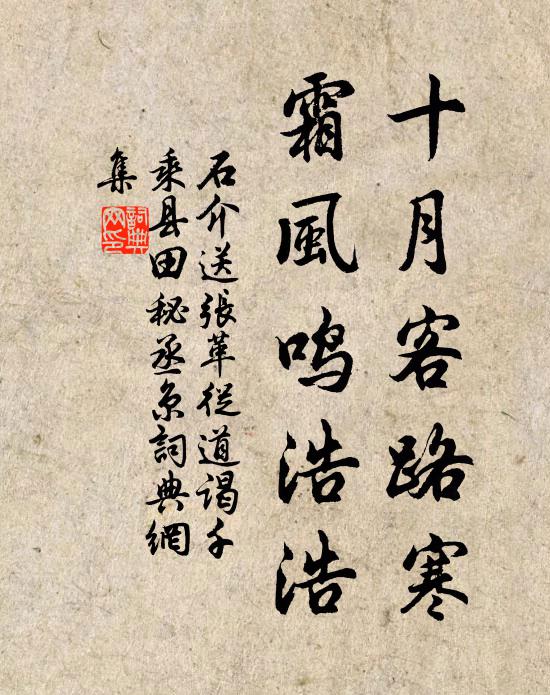 十月客路寒
霜風鸣浩浩
石介送張革從道謁千
乘县田秘丞京詞典網
集
詞典
网印